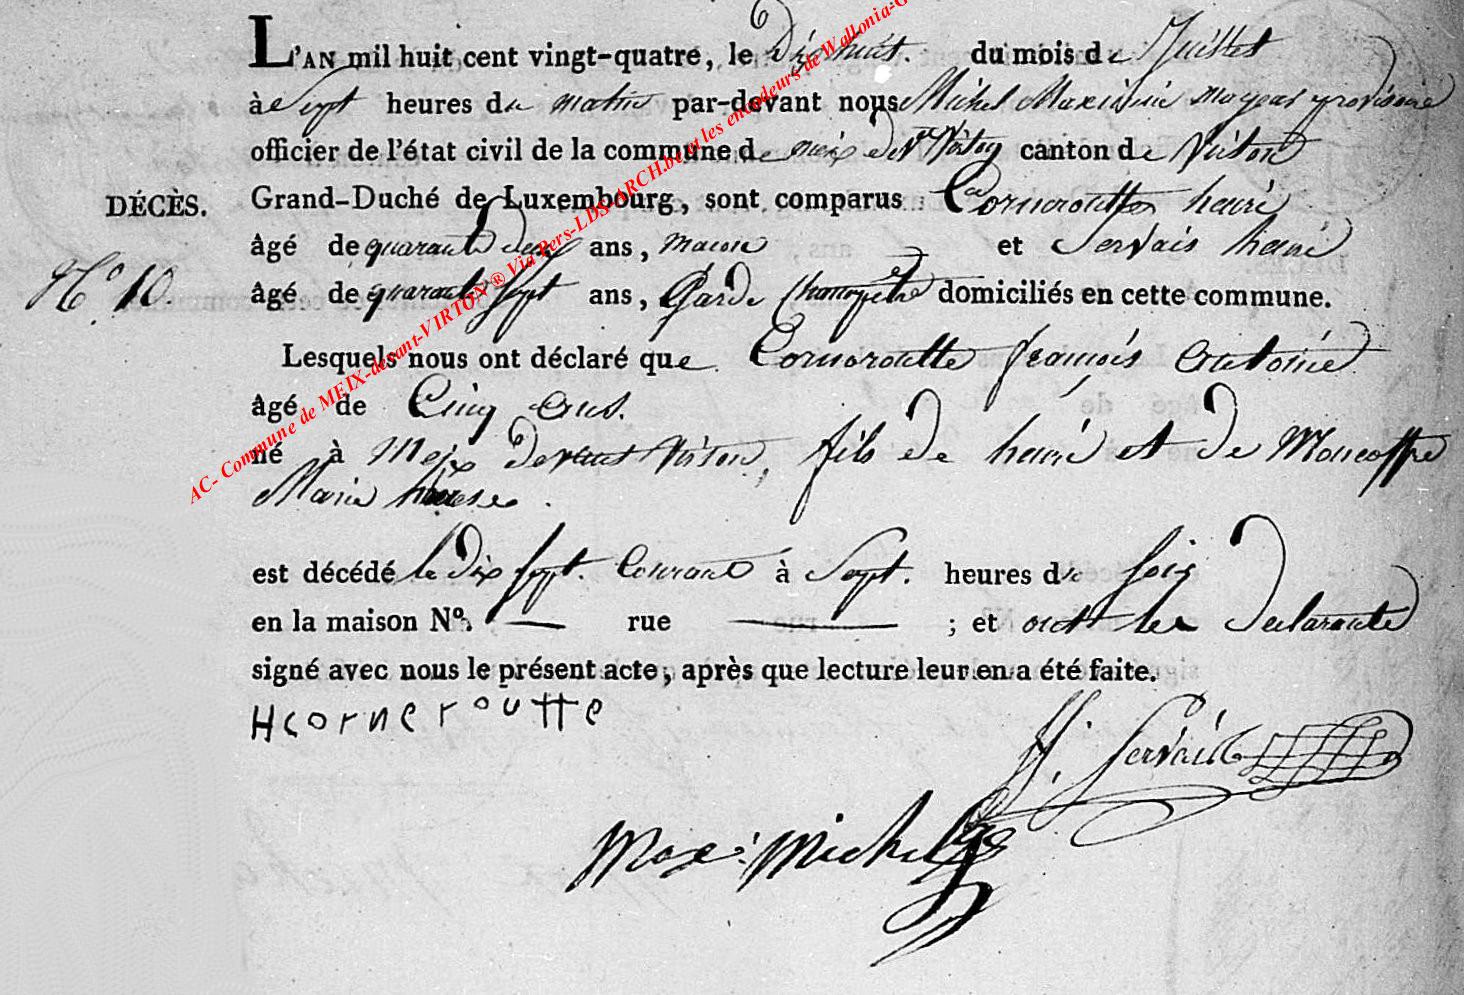 L'AN mil huit cent vingt-quatre, le Dixhuit. du mois de Juillet
à Sept heures du matin par-devant nous Michel Maximin mayeur provisoire
officier de l'état civil de la commune de meix devt Virton canton de Virton
DÉCÈS. Grand-Duché de Luxembourg, sont comparus Corneroutte henri
âgé de quarante deux ans, macon et Servais henri
N° 10. âgé de quarante sept ans, Garde Champetre domiciliés en cette commune.
Lesquels nous ont déclaré que Cornoroutte françois Antoine
âgé de Cinq ans.
né à Meix devant Virton, fils de henri et de Moncoffre
Marie therese.
est décédé le dix sept. Courant à Sept. heures du soir
en la maison N°. — rue — ; et ont les Declarants
signé avec nous le présent acte, après que lecture leur en a été faite.
Hcorneroutte
H. Servais
Max: Michel
AC- Commune de MEIX-devant-VIRTON ® Via Pers-LDS-ARCH.be et les encodeurs de Wallonia-G